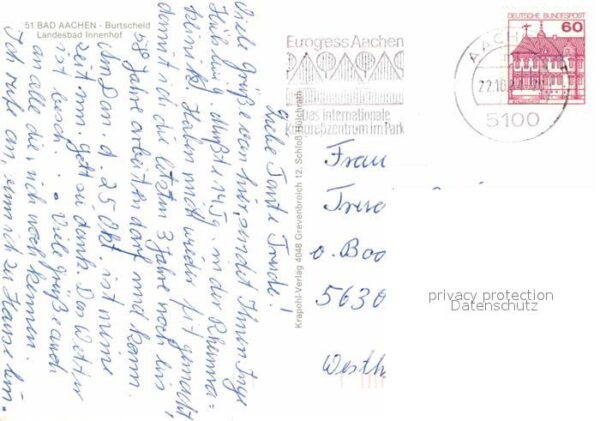 51 BAD AACHEN - Burtscheid
Landesbad Innenhof
Liebe Tante Trude!
Viele Grüße von hier, sendet Ihnen Inge
Heilung mußte 14 Tg. in der Rheuma=
klinik. Haben mich wieder fit gemacht,
damit ich die letzten 3 Jahre noch bis
58 Jahre arbeiten darf und kann.
Um Don. d. 25 Okt. ist meine
Zeit um. gott sei dank. Das Wetter
ist besch. . . Viele grüße auch
an alle die, mich noch kennen.
Ich rufe an, wenn ich zu Hause bin.
Krapohl-Verlag 4048 Grevenbroich 12, Schloß Hülchrath
Eurogress Aachen
Das internationale
Kongreßzentrum im Park
AACH
5100
DEUTSCHE BUNDESPOST
60
Frau
o. Boo
5630
Westh
privacy protection
Datenschutz